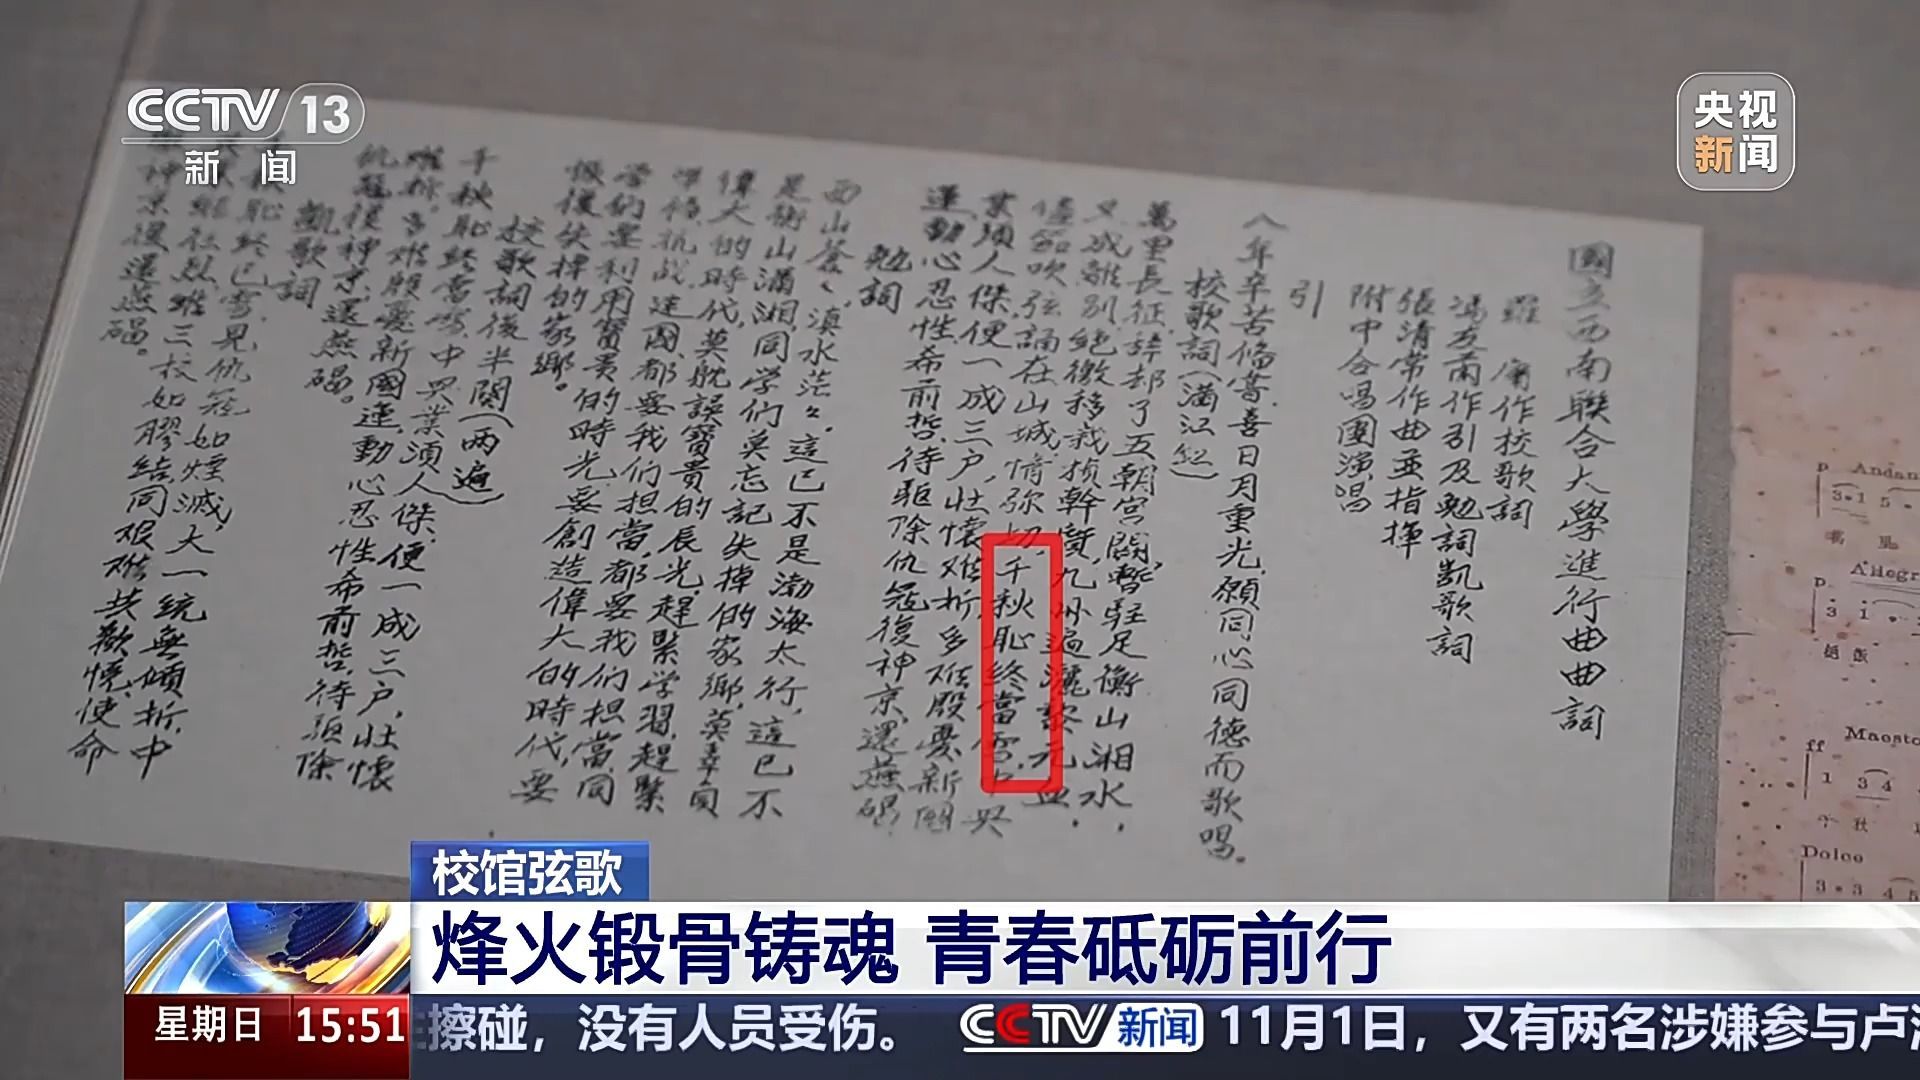 CCTV 13
新闻
央视
新闻
國立西南聯合大學進行曲曲詞
羅庸作校歌詞
馮友蘭作引及勉詞凱歌詞
張清常作曲並指揮
附中合唱團演唱
引
八年辛苦備嘗,喜日月重光,願同心同德而歌唱。
校歌詞(滿江紅)
萬里長征,辭却了五朝宮闕,暫駐足衡山湘水,
又成離別,絕徼移栽楨幹質,九州遍灑黎元血,
儘笳吹弦誦在山城,情弥切,千秋恥,終當雪,中興
業,須人傑,便一成三户,壯懷难折,多难殷憂新國
運,動心忍性希前哲,待驅除仇寇,復神京,還燕碣。
勉詞
西山蒼々,滇水茫々,這已不是渤海太行,這已不
是衡山瀟湘,同学们,莫忘記失掉的家鄉,莫辜負
偉大的時代,莫躭誤寶貴的辰光,趕緊学習,趕緊
準備,抗战建國,都要我们担當,都要我们担當,同
学们,要利用寶貴的時光,要創造偉大的時代,要
恢復失掉的家鄉。
校歌詞後半闋(兩遍)
千秋恥終當雪,中興業須人傑,便一成三户,壯懷
难折,多难殷憂新國運,動心忍性希前哲,待驅除
仇寇復神京,還燕碣。
凱歌詞
恥終已雪,見仇寇如煙滅,大一統無傾折,中
業繼往烈,維三校如膠結,同艱难,共歡悦,使命
神京復還燕碣。
p Andan
Allegr
p
ff
Maesto
千 秋
Dolce
校馆弦歌
烽火锻骨铸魂 青春砥砺前行
星期日 15:51
擦碰，没有人员受伤。 CCTV新闻 11月1日，又有两名涉嫌参与卢